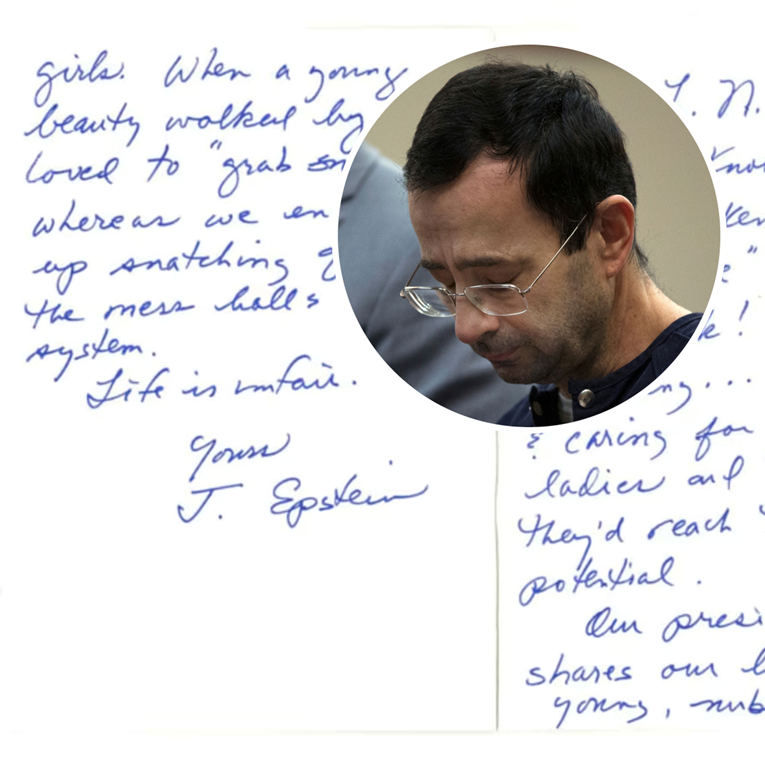 girls. When a young
beauty walked by
loved to "grab
whereas we
up snatching
the mess halls
system.
Life is unfair.
Yours
J. Epstein
L. N.
k!
& caring for
ladies and
they'd reach
potential.
Our
shares our
young,